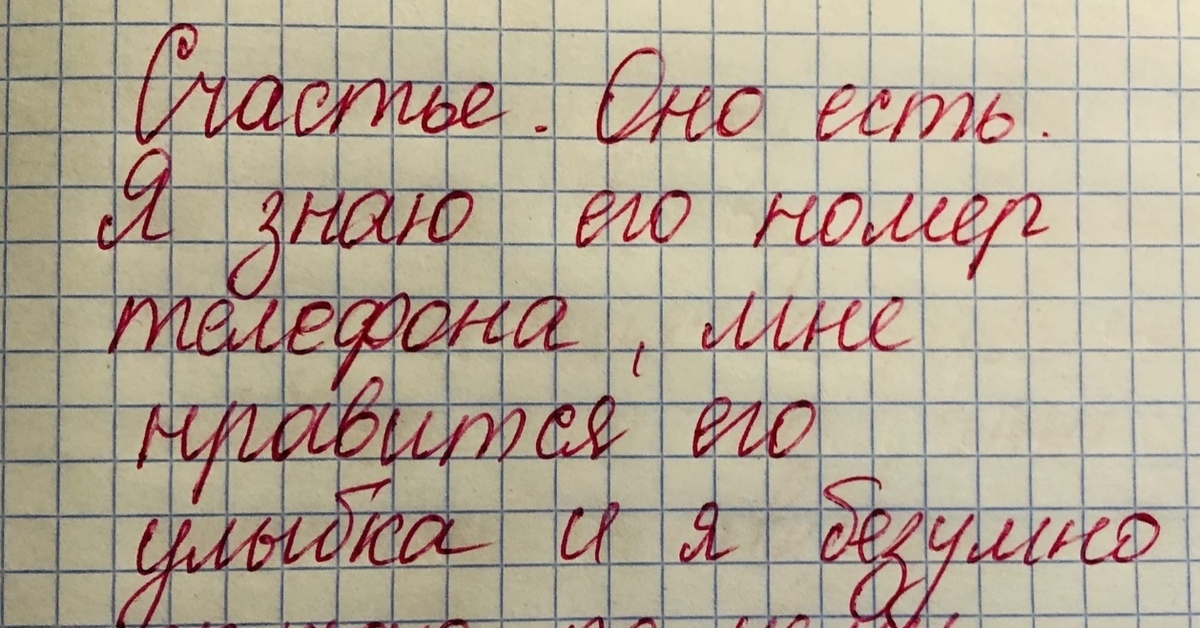 Счастье. Оно есть.
Я знаю его номер
телефона, мне
нравится его
улыбка и я безумно